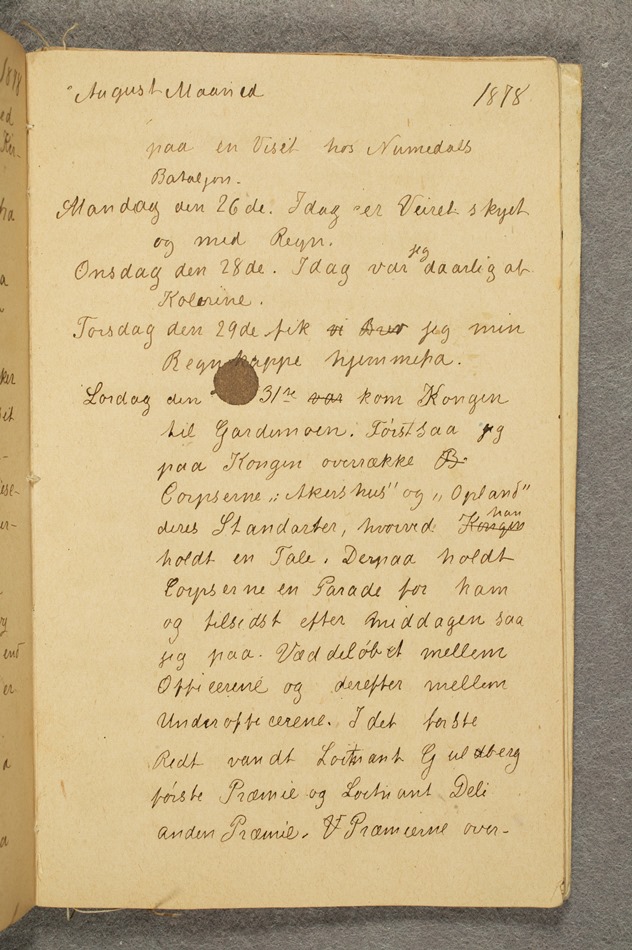 August Maaned 1878
paa en Visit hos Numedals
Bataljon.
Mandag den 26de. Idag er Veiret skyet
og med Regn.
Onsdag den 28de. Idag var jeg daarlig af
Kolerine.
Torsdag den 29de fik vi Brev jeg min
Regnkappe hjemmefra.
Lørdag den 31te var kom Kongen
til Gardemoen. Først saa jeg
paa Kongen overrække B
Corpserne „Akershus" og „Opland"
deres Standarter, hvorved Kongen han
holdt en Tale. Derpaa holdt
Corpserne en Parade for ham
og tilsidst efter Middagen saa
jeg paa. Væddeløbet mellem
Officerene og derefter mellem
Underofficerene. I det første
Redt vandt Loitnant Guldberg
første Præmie og Loitnant Deli
anden Præmie. Præmierne over-